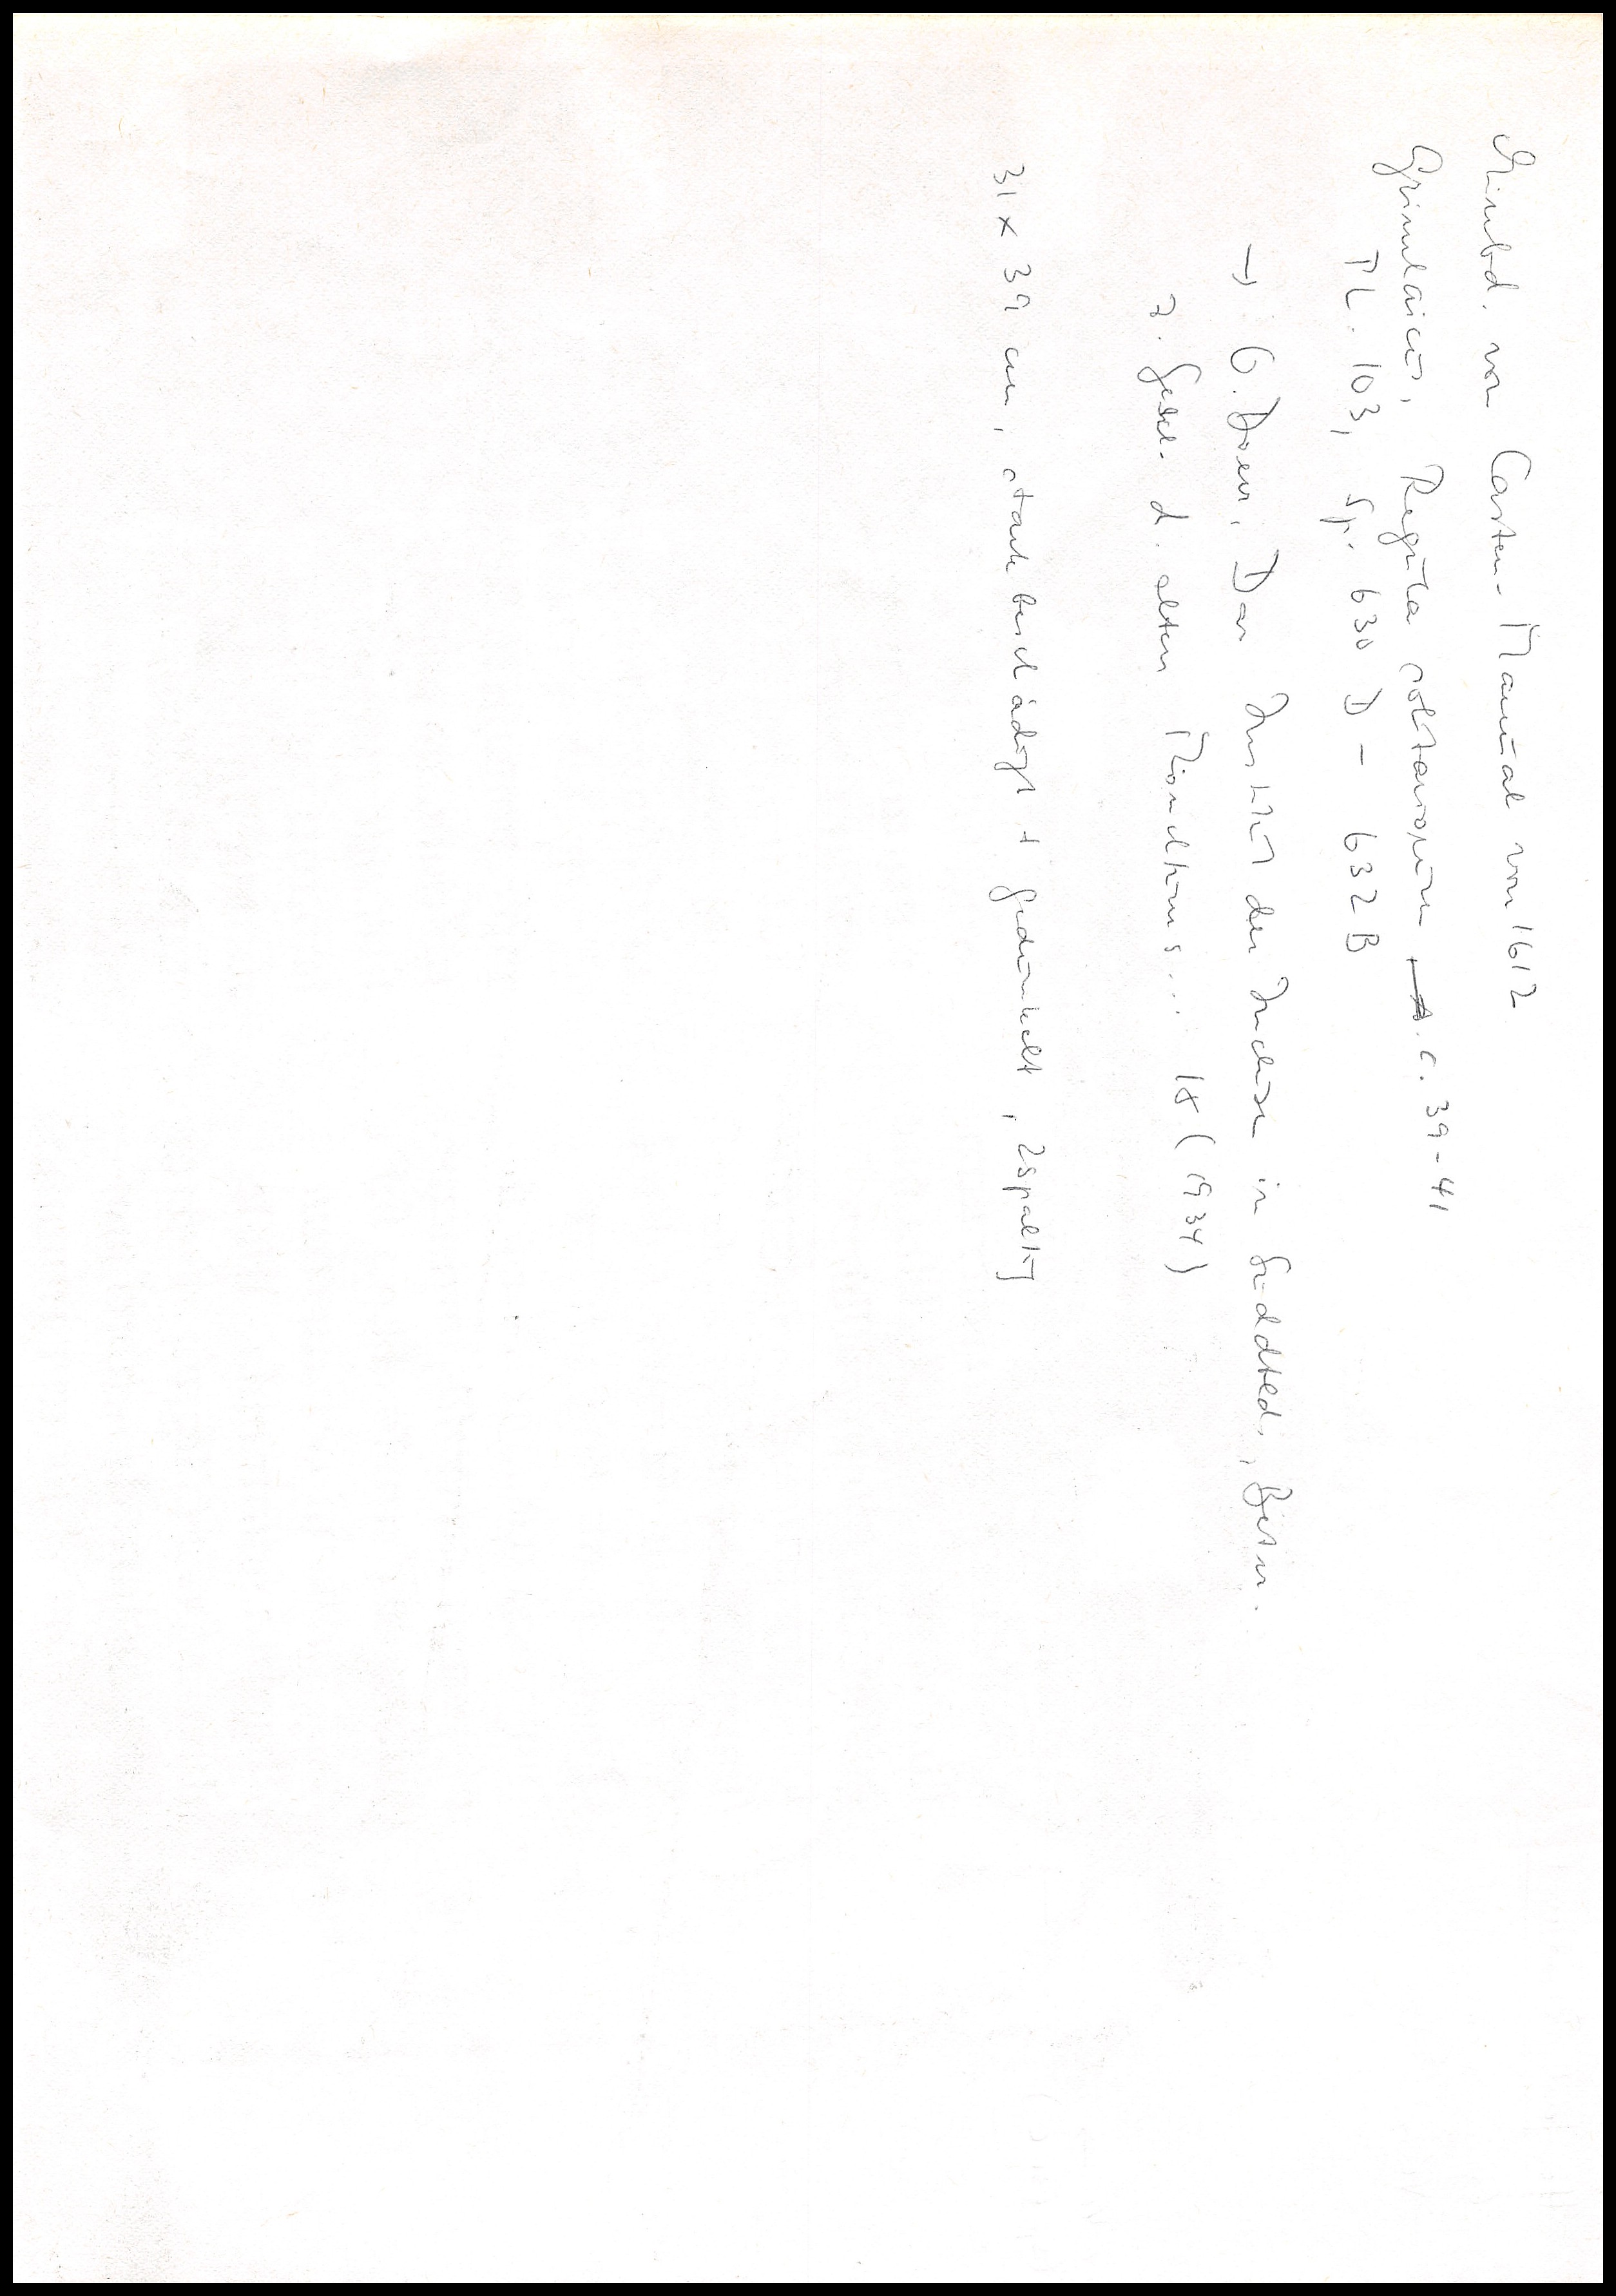 Einbd. von Casten-Manual von 1612
Grimlaicus, Regula solitariorum c. 39-41
PL. 103, Sp. 630 D - 632 B
→ O. Doerr, Das Institut der Inclusen in Süddtld., Beitr.
z. Gesch. d. alten Mönchtums... 18 (1934)
31 x 39 cm, stark beschädigt + gedunkelt, 2spaltig